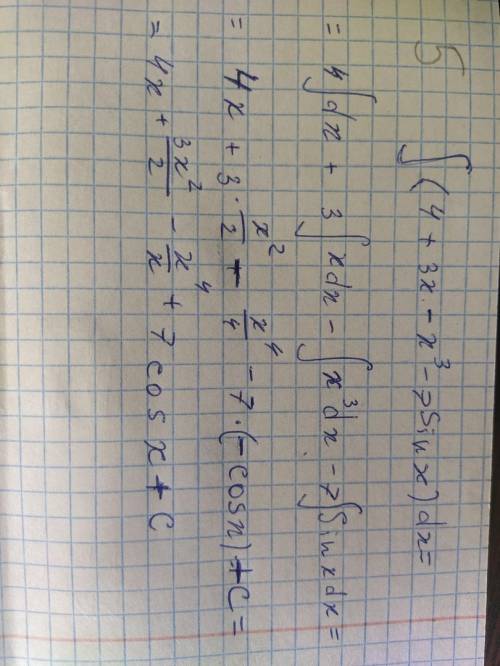 5
∫(4 + 3x - x³ - 7sin x)dx =
= 4∫dx + 3∫xdx - ∫x³dx - 7∫sinxdx =
= 4x + 3 · x²/2 - x⁴/4 - 7 · (-cosn) + C =
= 4x + 3x²/2 - x⁴/x + 7cos x + C